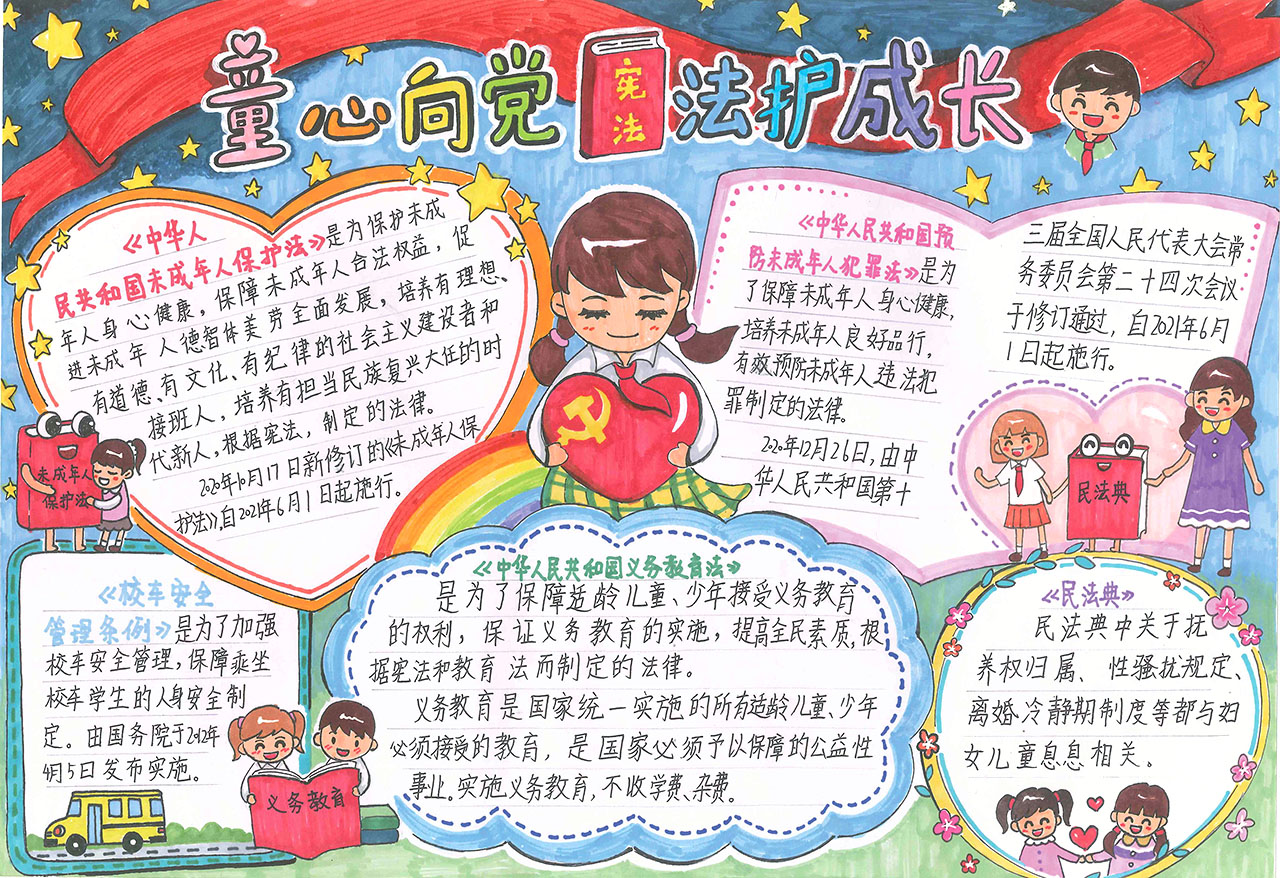 童心向党 宪法 法护成长
《中华人
民共和国未成年人保护法》是为保护未成
年人身心健康，保障未成年人合法权益，促
进未成年人德智体美劳全面发展，培养有理想、
有道德、有文化、有纪律的社会主义建设者和
接班人，培养有担当民族复兴大任的时
代新人，根据宪法，制定的法律。
2020年10月17日新修订的《未成年人保
护法》，自2021年6月1日起施行。
未成年人
保护法
《中华人民共和国预
防未成年人犯罪法》是为
了保障未成年人身心健康，
培养未成年人良好品行，
有效预防未成年人违法犯
罪制定的法律。
2020年12月26日，由中
华人民共和国第十
三届全国人民代表大会常
务委员会第二十四次会议
于修订通过，自2021年6月
1日起施行。
民法典
《校车安全
管理条例》是为了加强
校车安全管理，保障乘坐
校车学生的人身安全制
定。由国务院于2012年
4月5日发布实施。
义务教育
《中华人民共和国义务教育法》
是为了保障适龄儿童、少年接受义务教育
的权利，保证义务教育的实施，提高全民素质，根
据宪法和教育法而制定的法律。
义务教育是国家统一实施的所有适龄儿童、少年
必须接受的教育，是国家必须予以保障的公益性
事业。实施义务教育，不收学费、杂费。
《民法典》
民法典中关于抚
养权归属、性骚扰规定、
离婚冷静期制度等都与妇
女儿童息息相关。